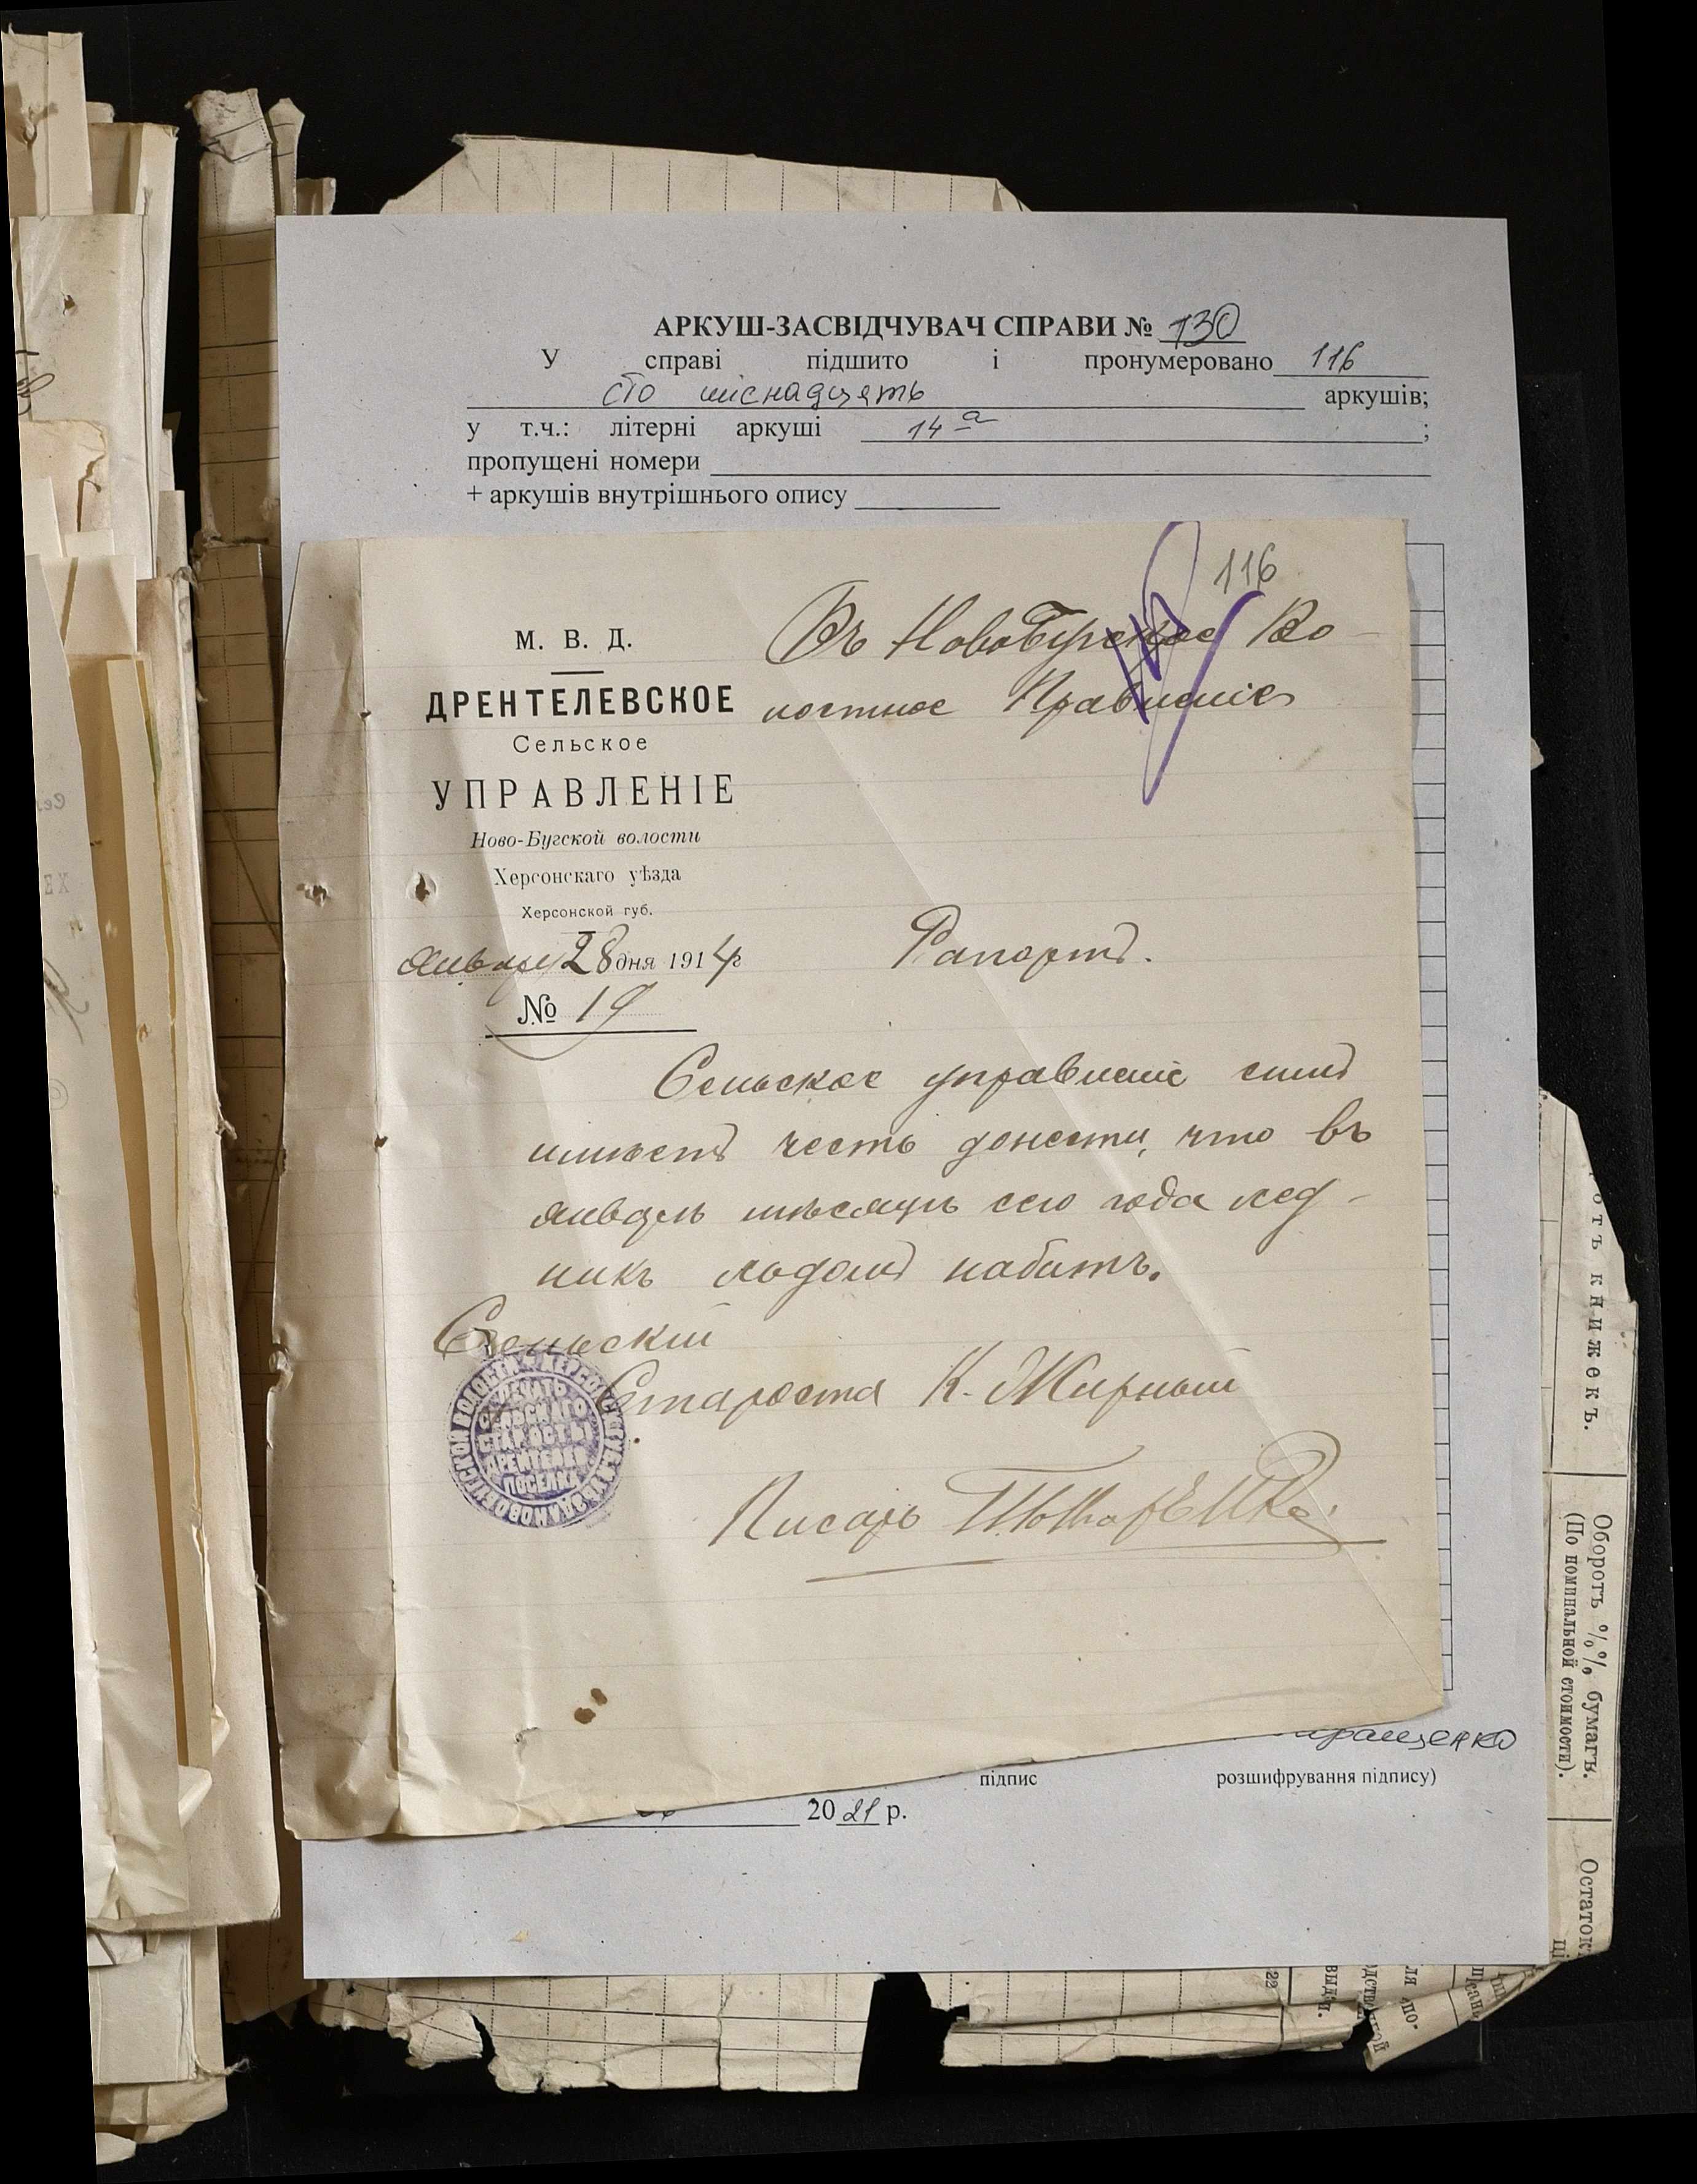 АРКУШ-ЗАСВІДЧУВАЧ СПРАВИ № 130
У справі підшито і пронумеровано 116
сто шіснадцять аркушів;
у т.ч.: літерні аркуші 14а ;
пропущені номери
+ аркушів внутрішнього опису
116
М. В. Д.
ДРЕНТЕЛЕВСКОЕ
Сельское
УПРАВЛЕНІЕ
Ново-Бугской волости
Херсонскаго уѣзда
Херсонской губ.
Января 28 дня 1914 г
№ 19
Въ НовоБугское Во-
лостное Правленіе
Рапортъ.
Сельское управленіе симъ
имѣетъ честь донести, что въ
январѣ мѣсяцѣ сего года лед-
никъ льдомъ набитъ.
Сельскій
Староста К. Жирный
Писарь
ПЕЧАТЬ
СЕЛЬСКАГО
СТАРОСТЫ
ДРЕНТЕЛЕВ
ПОСЕЛКА
підпис
розшифрування підпису)
20 21 р.
отъ книжекъ.
Оборотъ %% бумагъ.
(По номинальной стоимости).